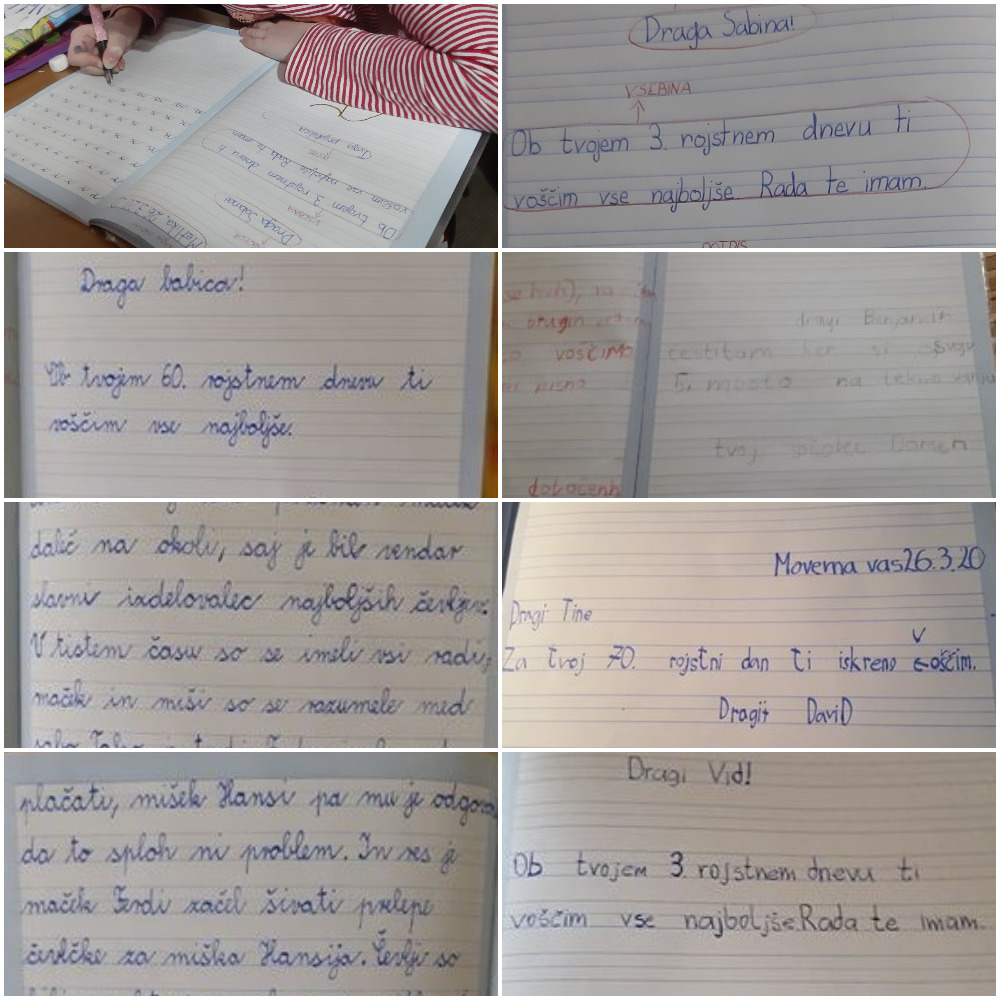 Metlika, 26.3.
Draga Sabina!
VSEBINA
Ob tvojem 3. rojstnem dnevu ti
voščim vse najboljše. Rada te imam.
Tvoja prijateljica
Draga Sabina!
VSEBINA
Ob tvojem 3. rojstnem dnevu ti
voščim vse najboljše. Rada te imam.
Draga babica!
Ob tvojem 60. rojstnem dnevu ti
voščim vse najboljše.
VOŠČIMO
pisno
določenih
dragi Benjamin
čestitam ker si
5. mesto na tekmovanju
tvoj
daleč na okoli, saj je bil vendar
slavni izdelovalec najboljših čevljev.
V tistem času so se imeli vsi radi,
maček in miši so se razumele med
Moverna vas 26.3.20
Dragi Tine
Za tvoj 70. rojstni dan ti iskreno voščim.
DaviD
plačati, mišek Hansi pa mu je odgovo
da to sploh ni problem. In res je
maček Ferdi začel šivati prelepe
čevlčke za miška Hansija. Čevlji so
Dragi Vid!
Ob tvojem 3. rojstnem dnevu ti
voščim vse najboljše. Rada te imam.